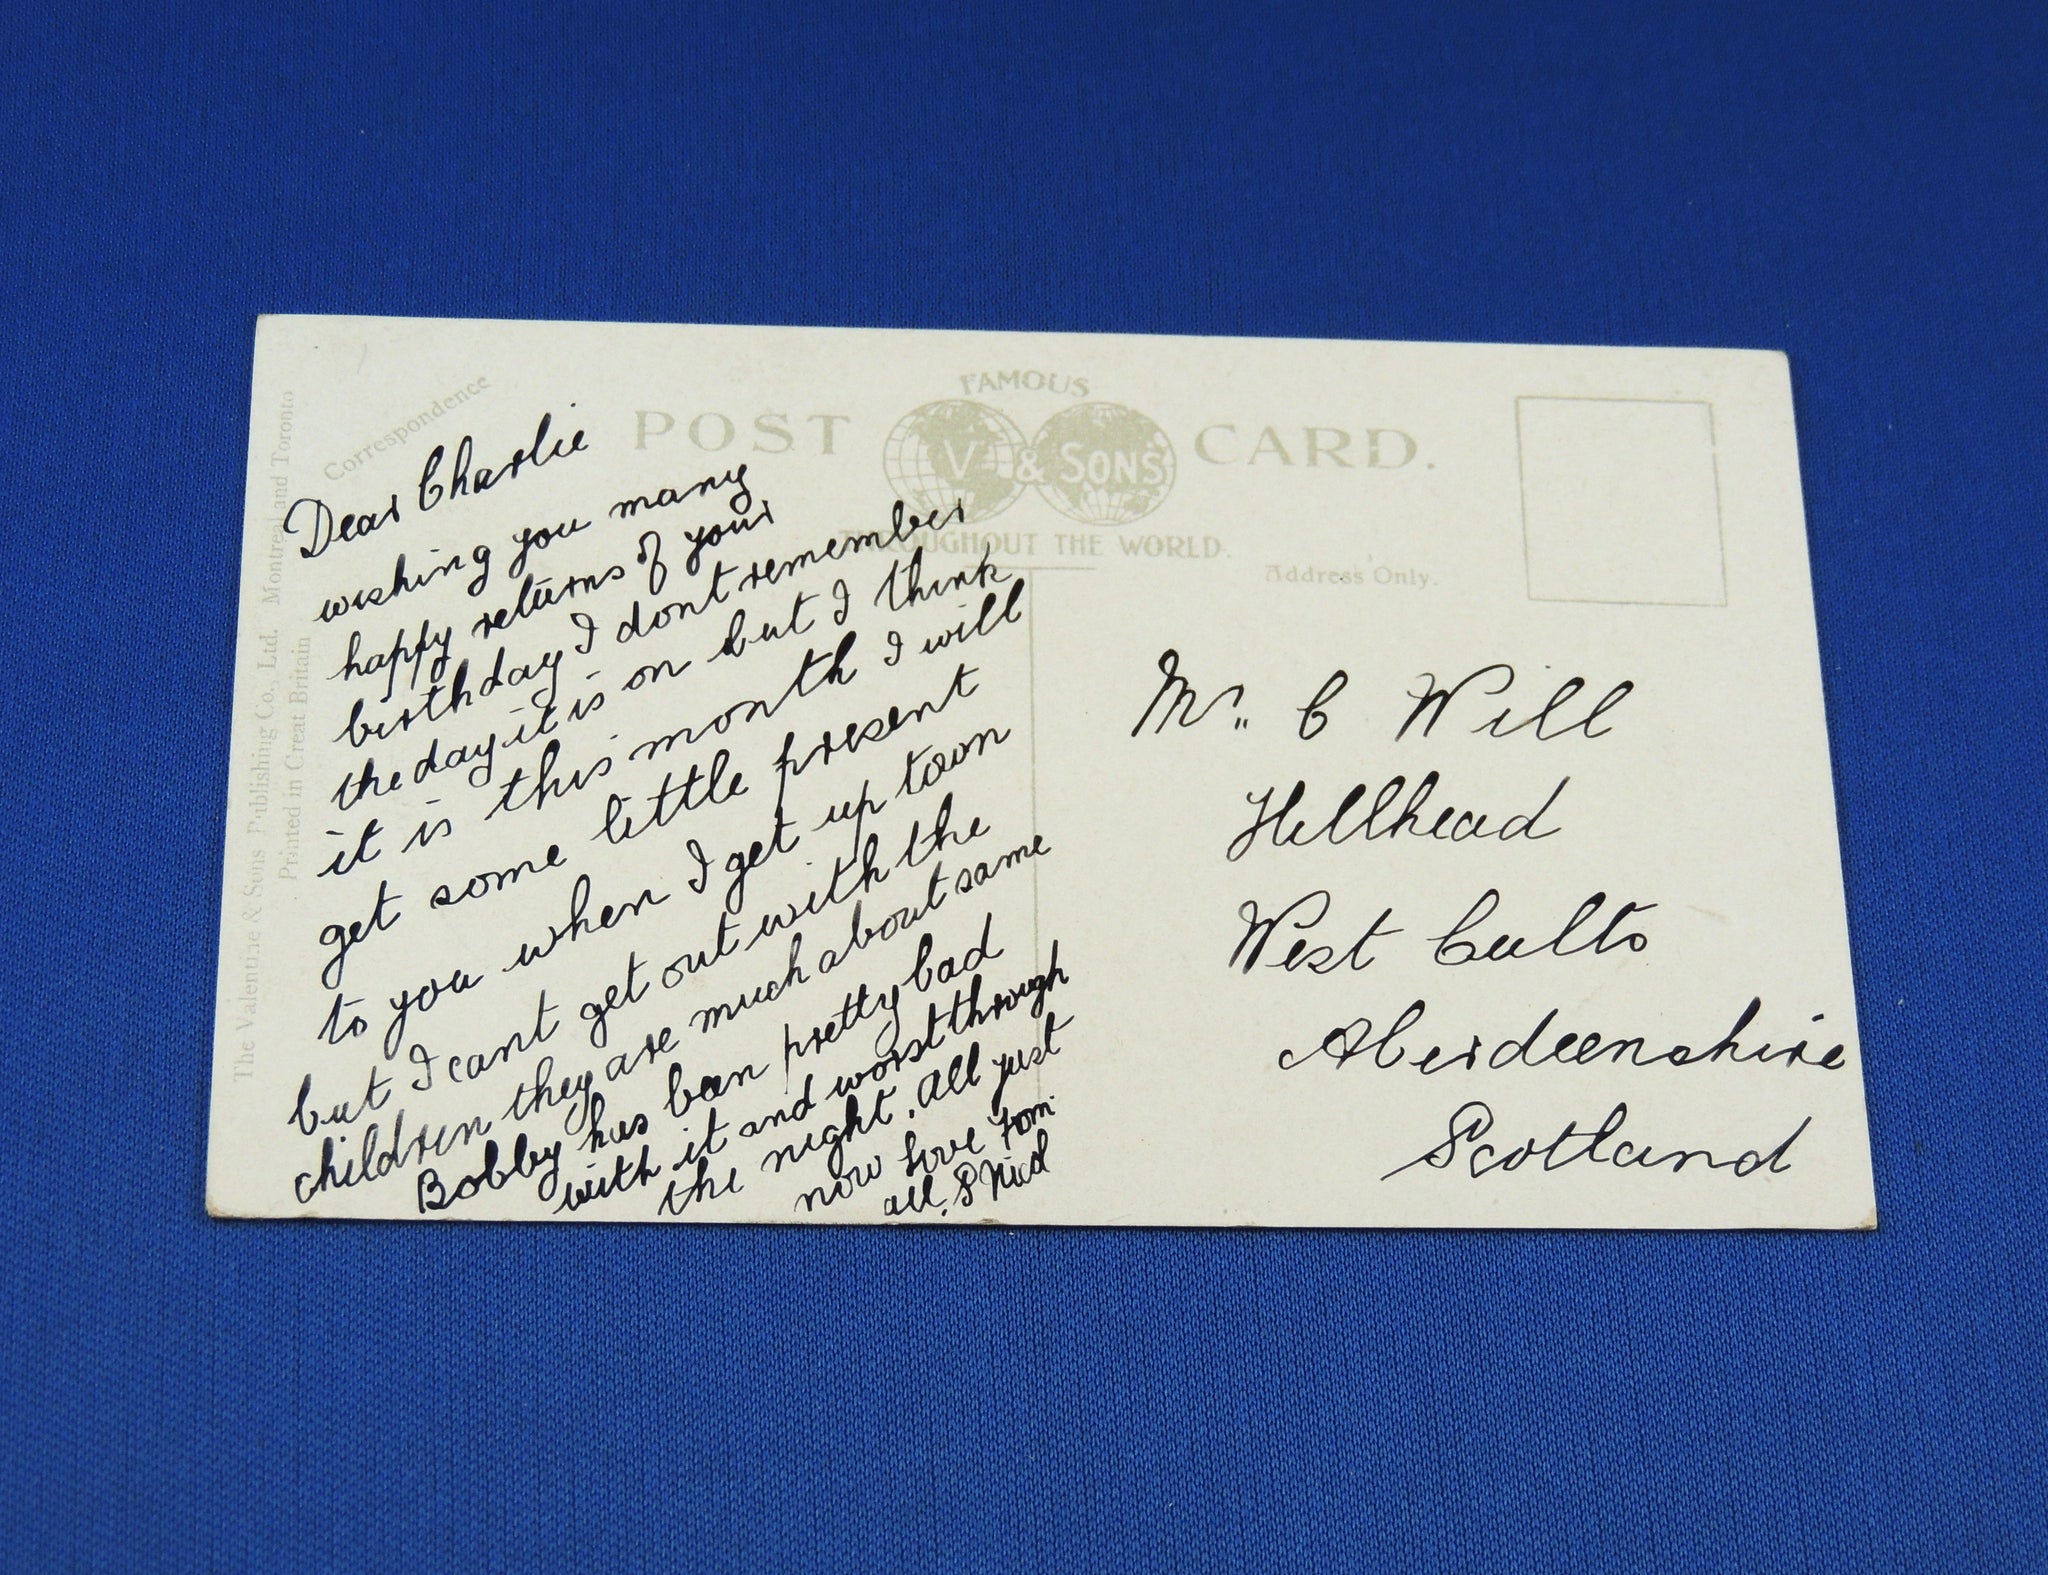 Correspondence
POST CARD.
FAMOUS
V & SONS
THROUGHOUT THE WORLD.
Address Only.
The Valentine & Sons Publishing Co., Ltd. Montreal and Toronto
Printed in Great Britain
Dear Charlie
wishing you many
happy returns of your
birthday I dont remember
the day it is on but I think
it is this month I will
get some little present
to you when I get up town
but I cant get out with the
children they are much about same
Bobby has been pretty bad
with it and worst through
the night. All just
now love from
all. P Nicol
Mr. C Will
Hillhead
West Cults
Aberdeenshire
Scotland